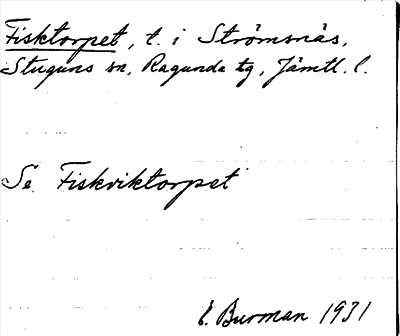 Fisktorpet, t. i Strömsnäs,
Stuguns sn, Ragunda tg, Jämtl. l.
Se Fiskviktorpet
E. Burman 1931